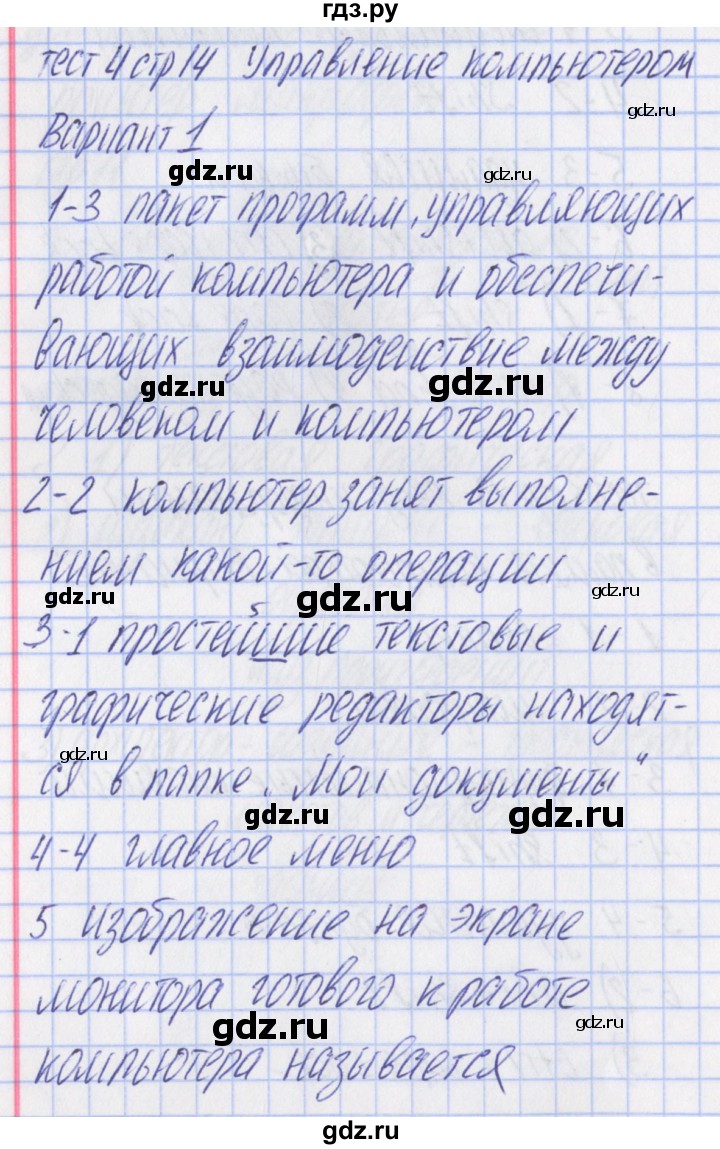 гдз.ру
тест 4 стр 14 Управление компьютером
gdz.ru
Вариант 1
gdz.ru
gdz.ru
1-3 пакет программ, управляющих
работой компьютера и обеспечи-
вающих взаимодействие между
gdz.ru
gdz.ru
человеком и компьютером
2-2 компьютер занят выполне-
нием какой-то операции
gdz.ru
gdz.ru
gdz.ru
3-1 простейшие текстовые и
графические редакторы находят-
gdz.ru
ся в папке „Мои документы"
gdz.ru
gdz.ru
4-4 главное меню
5 изображение на экране
монитора готового к работе
gdz.ru
gdz.ru
компьютера называется
gdz.ru